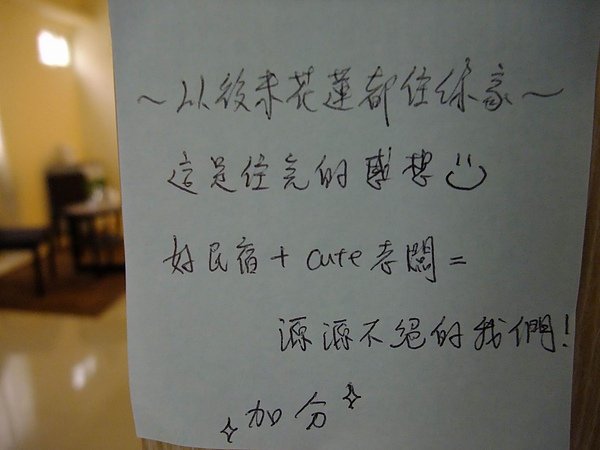 ~以後來花蓮都住你家~
這是住完的感想
好民宿+cute老闆=
源源不絕的我們!
加分